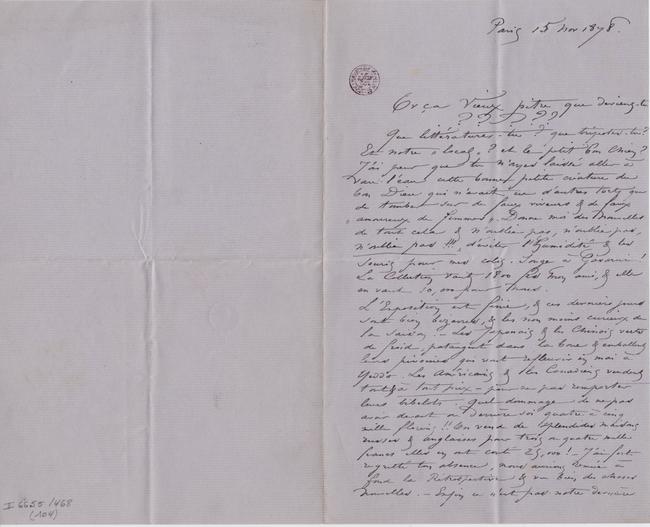 Paris 15 Nov 1878.
Or ça Vieux pitre que deviens-tu
? ? ? ? ? ?
Que littératures-tu ? que tripotes-tu ?
Et notre "local" ? et le p'tit bon Chien ?
J'ai peur que tu n'ayes laissé aller à
vau l'eau cette bonne petite créature du
bon Dieu qui n'avait eu d'autres torts que
de tomber sur de faux viveurs & de faux
"amoureux de femmes". Donne moi des nouvelles
de tout cela & n'oublie pas, n'oublie pas,
n'oublie pas !!! d'éviter l'humidité & les
souris pour mes colis. Songe à Gavarni !
La Collection vaut 1800 frs mon ami, & elle
en vaut 50, on pour
L'Exposition est finie, & ces derniers jours
sont bien bizarres, & les non moins curieux de
la saison. - Les Japonais & les Chinois verts
de froid, pataugent dans la boue & emballent
leurs pivoines qui vont refleurir en mai à
Yeddo. Les Américains & les Canadiens vendent
tout à tout prix - pour ne pas remporter
leurs bibelots. Quel dommage de ne pas
avoir devant ou derrière soi quatre à cinq
mille florins !! On vend de splendides maisons
russes & anglaises pour trois ou quatre mille
francs elles en ont coûté 25,000 ! - J'ai fort
regretté ton absence, nous aurions remué à
fond la Rétrospective & vu bien des choses
nouvelles. - Enfin ce n'est pas notre dernière
I 6655/468
(104)